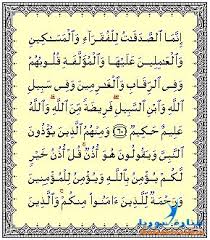 إِنَّمَا ٱلصَّدَقَٰتُ لِلْفُقَرَآءِ وَٱلْمَسَٰكِينِ
وَٱلْعَٰمِلِينَ عَلَيْهَا وَٱلْمُؤَلَّفَةِ قُلُوبُهُمْ
وَفِى ٱلرِّقَابِ وَٱلْغَٰرِمِينَ وَفِى سَبِيلِ
ٱللَّهِ وَٱبْنِ ٱلسَّبِيلِ ۖ فَرِيضَةً مِّنَ ٱللَّهِ ۗ وَٱللَّهُ
عَلِيمٌ حَكِيمٌ ٦٠ وَمِنْهُمُ ٱلَّذِينَ يُؤْذُونَ
ٱلنَّبِىَّ وَيَقُولُونَ هُوَ أُذُنٌ ۚ قُلْ أُذُنُ خَيْرٍ
لَّكُمْ يُؤْمِنُ بِٱللَّهِ وَيُؤْمِنُ لِلْمُؤْمِنِينَ
وَرَحْمَةٌ لِّلَّذِينَ ءَامَنُوا۟ مِنكُمْ ۚ وَٱلَّذِينَ